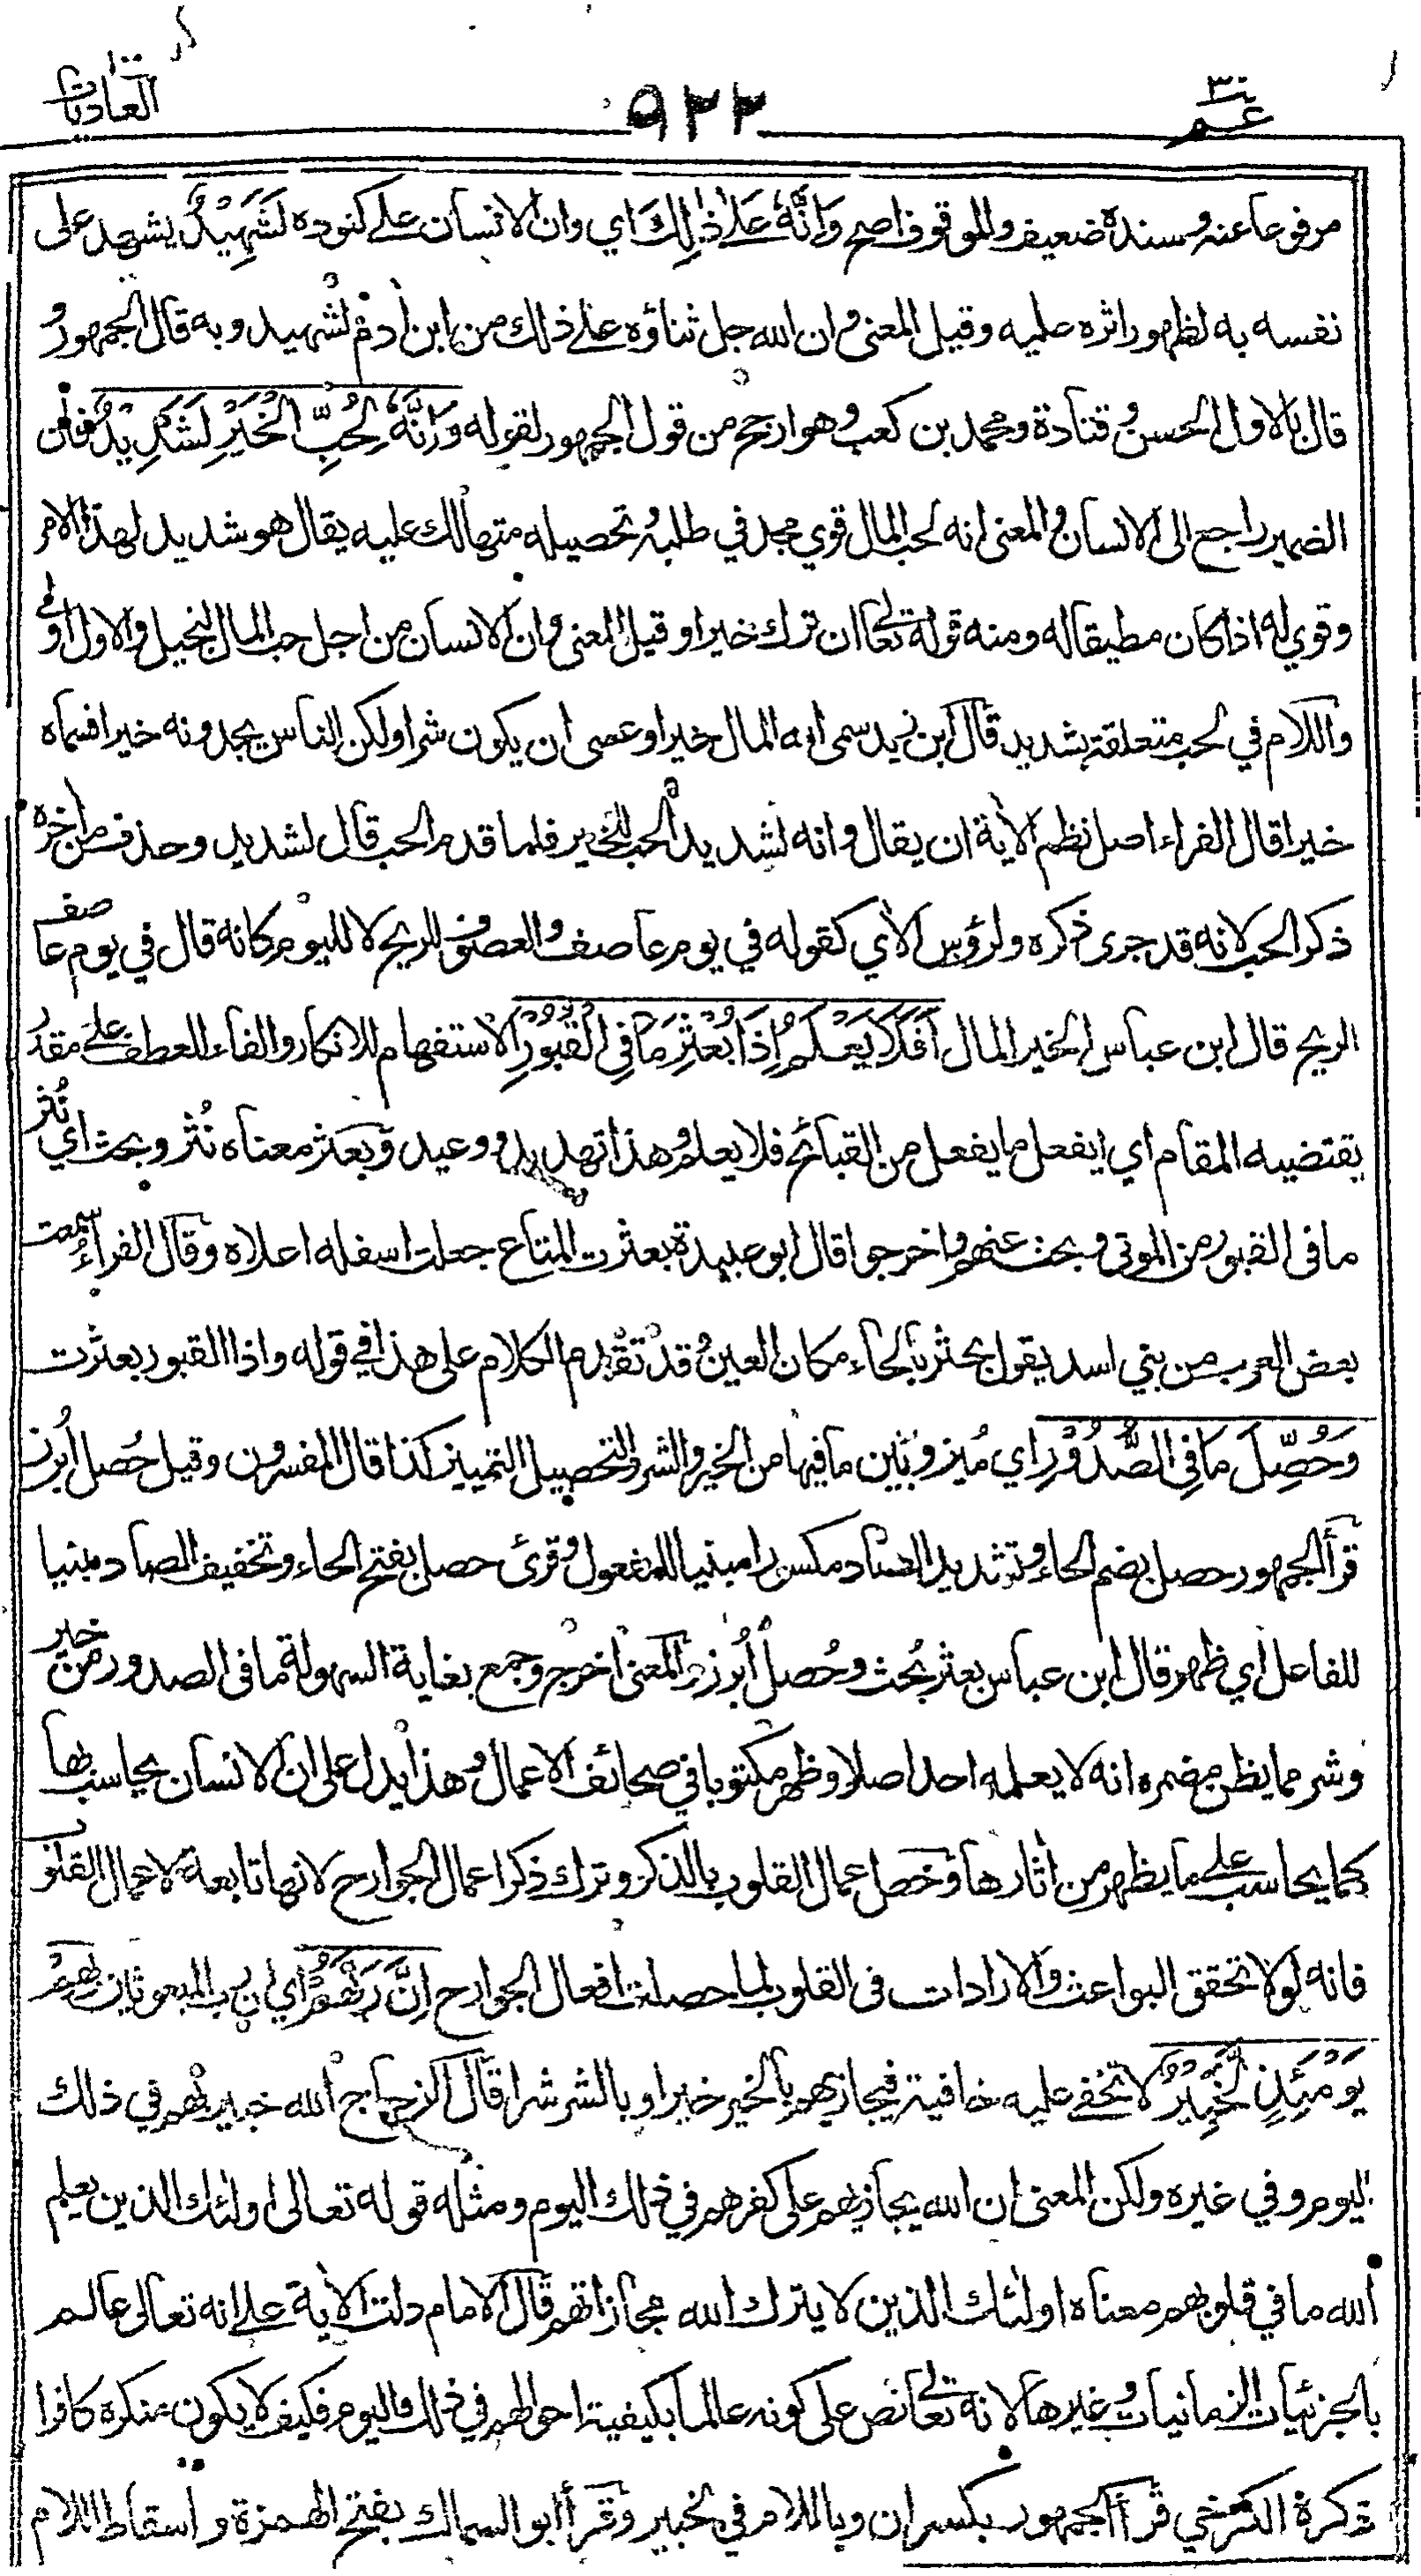 عم ٣٠
٩٢٢
العاديات
مرفوعا عنه وسنده ضعيف والموقوف اصح وَاِنَّهٗ عَلٰى ذٰلِكَ اي وان الانسان على كنوده لَشَهِيْدٌ يشهد على
نفسه به لظهور اثره عليه وقيل المعنى وان الله جل ثناؤه على ذلك من ابن اٰدم لشهيد وبه قال الجمهور و
قال بالاول الحسن وقتادة ومحمد بن كعب وهو ارجح من قول الجمهور لقوله وَاِنَّهٗ لِحُبِّ الْخَيْرِ لَشَدِيْدٌ فان
الضمير راجع الى الانسان والمعنى انه لحب المال قوي مجد في طلبه وتحصيله متهالك عليه يقال هو شديد لهذا الامر
وقوي له اذا كان مطيقا له ومنه قوله تعالى ان ترك خيرا وقيل المعنى وان الانسان من اجل حب المال لبخيل والاول اولى
واللام في لحب متعلقة بشديد قال ابن زيد سمى الله المال خيرا وعسى ان يكون شرا ولكن الناس يجدونه خيرا فسماه
خيرا قال الفراء اصل نظم الاٰية ان يقال وانه لشديد الحب للخير فلما قدم الحب قال لشديد وحذف من اٰخره
ذكر الحب لانه قد جرى ذكره ولرؤس الاٰي كقوله في يوم عاصف والعصوف للريح لا لليوم كانه قال في يوم عاصف
الريح قال ابن عباس الخير المال اَفَلَا يَعْلَمُ اِذَا بُعْثِرَ مَا فِي الْقُبُوْرِ الاستفهام للانكار والفاء للعطف على مقدر
يقتضيه المقام اي ايفعل ما يفعل من القبائح فلا يعلم وهذا تهديد ووعيد وبعثر معناه نُثر وبحث اي نُثر
ما في القبور من الموتى وبحث عنهم واخرجوا قال ابو عبيدة بعثرت المتاع جعلت اسفله اعلاه وقال الفراء سمعت
بعض العرب من بني اسد يقول بحثر بالحاء مكان العين وقد تقدم الكلام على هذا في قوله واذا القبور بعثرت
وَحُصِّلَ مَا فِي الصُّدُوْرِ اي مُيز وبُيّن ما فيها من الخير والشر والتحصيل التمييز كذا قال المفسرون وقيل حُصل اُبرز
قرأ الجمهور حصل بضم الحاء وتشديد الصاد مكسورا مبنيا للمفعول وقرئ حصل بفتح الحاء وتخفيف الصاد مبنيا
للفاعل اي ظهر قال ابن عباس بعثر بُحث وحُصل اُبرز والمعنى اخرج وجمع بغاية السهولة ما في الصدور من خير
وشر مما يظن مضمره انه لا يعلمه احد اصلا وظهر مكتوبا في صحائف الاعمال وهذا يدل على ان الانسان يحاسب بها
كما يحاسب على ما يظهر من اٰثارها وخص اعمال القلوب بالذكر وترك ذكر اعمال الجوارح لانها تابعة لاعمال القلوب
فانه لولا تحقق البواعث والارادات في القلوب لما حصلت افعال الجوارح اِنَّ رَبَّهُمْ اي ان رب المبعوثين بِهِمْ
يَوْمَئِذٍ لَّخَبِيْرٌ لا تخفى عليه خافية فيجازيهم بالخير خيرا وبالشر شرا قال الزجاج الله خبير بهم في ذلك
اليوم وفي غيره ولكن المعنى ان الله يجازيهم على كفرهم في ذلك اليوم ومثله قوله تعالى اولئك الذين يعلم
الله ما في قلوبهم معناه اولئك الذين لا يترك الله مجازاتهم قال الامام دلت الاٰية على انه تعالى عالم
بالجزئيات الزمانيات وغيرها لانه تعالى نص على كونه عالما بكيفية احوالهم في ذلك اليوم فكيف لا يكون منكره كافرا
ذكره الكرخي قرأ الجمهور بكسر ان وباللام في لخبير وقرأ ابو السمال بفتح الهمزة واسقاط اللام